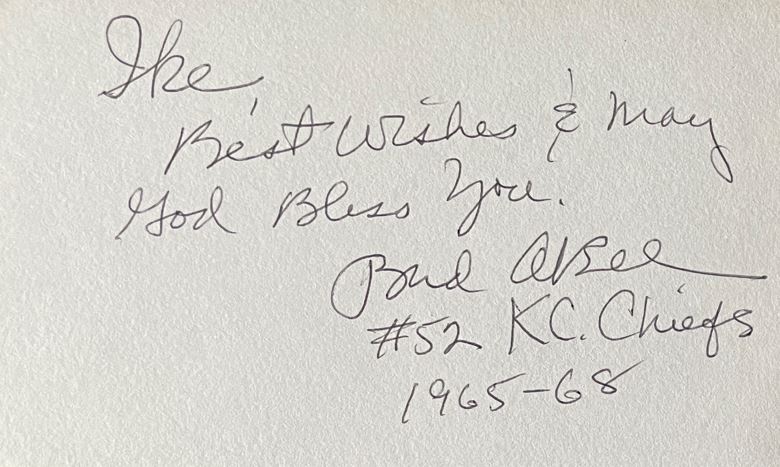 Ike,
Best Wishes & May
God Bless You.
Bud Abell
#52 KC. Chiefs
1965-68